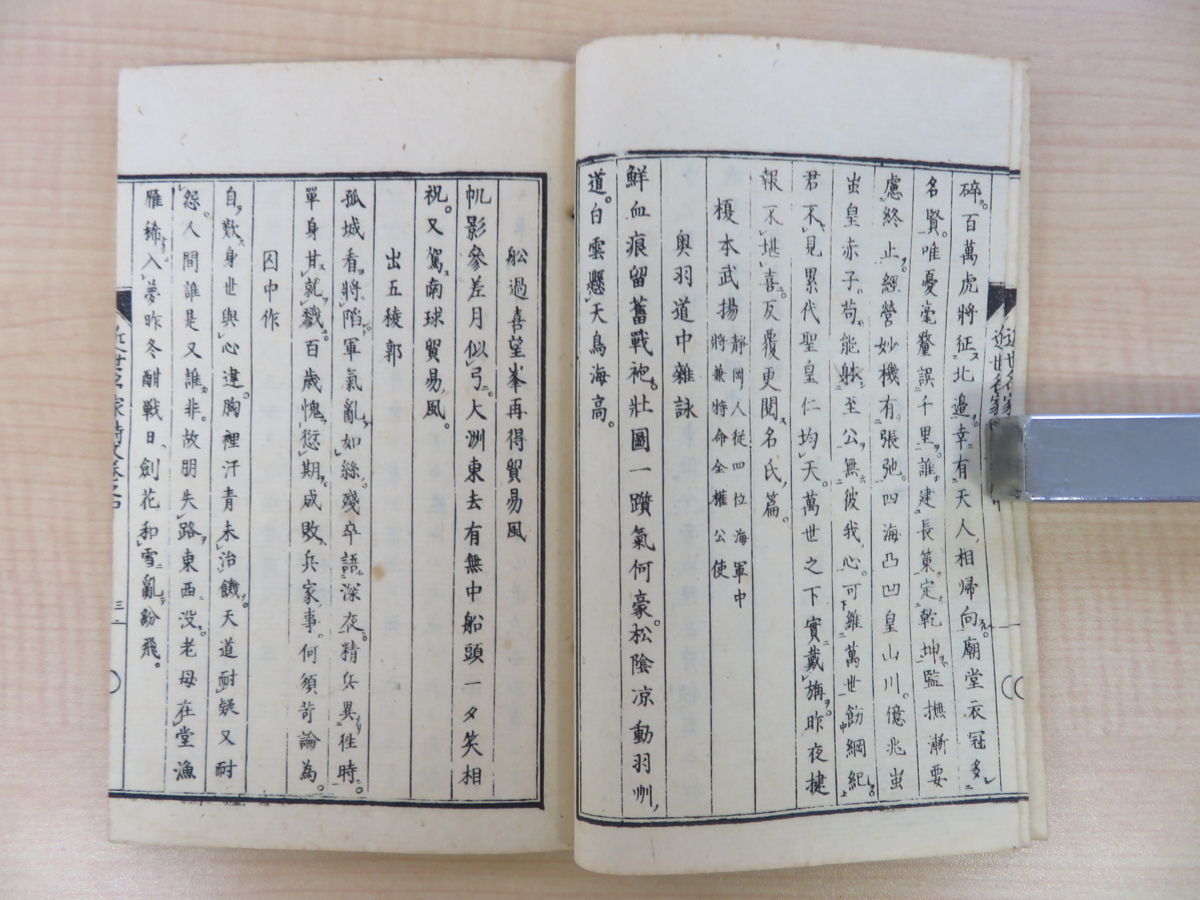 碎百萬虎將征北邊幸有天人相帰向廟堂衣冠多
名賢唯憂毫釐誤千里誰建長策定乾坤監撫漸要
慮終止經營妙機有張弛四海凸凹皇山川億兆蚩
蚩皇赤子苟能躰至公無彼我心可維萬世飭綱紀
君不見累代聖皇仁均天萬世之下實戴旃昨夜捷
報不堪喜反覆更閱名氏篇
榎本武揚 静岡人從四位海軍中將兼特命全權公使
奥羽道中雜詠
鮮血痕留舊戰袍壯圖一躓氣何豪松陰凉動羽州
道白雲懸天鳥海高
舩過喜望峯再得貿易風
帆影參差月似弓大洲東去有無中船頭一夕笑相
祝又駕南球貿易風
出五稜郭
孤城看將陷軍氣亂如絲殘卒語深夜精兵異徃時
單身甘就戮百歳愧愆期成敗兵家事何須苛論為
囚中作
自歎身世與心違胸裡汗青未治饑天道耐疑又耐
怨人間誰是又誰非故朋失路東西没老母在堂漁
雁稀入夢昨冬酣戰日劍花和雪亂紛飛
近世名家詩文卷之
三
近世名家